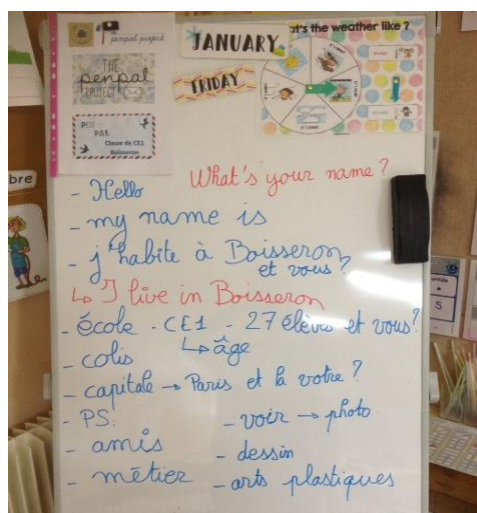 the penpal project
THE
penpal
PROJECT
PEN
PAL
Classe de CE1
Boisseron
JANUARY
FRIDAY
at's the weather like ?
What's your name ?
- Hello
- my name is
- j'habite à Boisseron,
et vous ?
↳ I live in Boisseron
- école - CE1 - 27 élèves et vous ?
↳ âge
- colis
- capitale → Paris et la votre ?
- PS:
- amis
- métier
- voir → photo
- dessin
- arts plastiques
bre
5